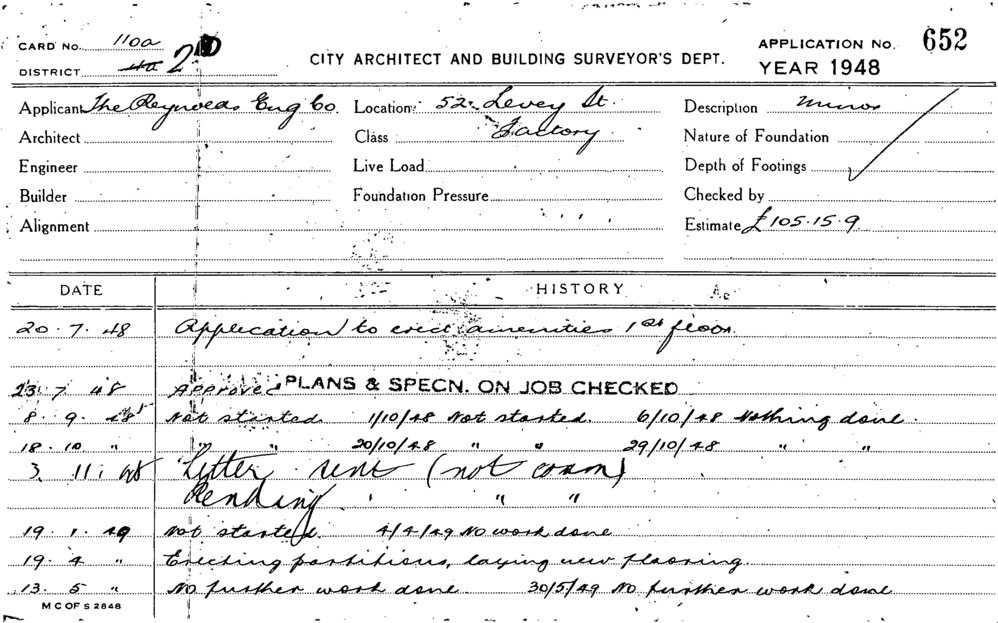 CARD No. 110a
DISTRICT 4a 2D
CITY ARCHITECT AND BUILDING SURVEYOR'S DEPT.
APPLICATION No. 652
YEAR 1948
Applicant The Reynolds Eng Co. Location 52 Levey St. Description Minor
Architect Class Factory Nature of Foundation
Engineer Live Load Depth of Footings
Builder Foundation Pressure Checked by
Alignment Estimate £105.15.9
DATE HISTORY
20.7.48 Application to erect amenities 1st floor.
23.7.48 Approved PLANS & SPECN. ON JOB CHECKED
8.9.48 Not started. 1/10/48 Not started. 6/10/48 Nothing done.
18.10 " " " 20/10/48 " " 29/10/48 " "
3.11.48 Letter sent (not comm)
Pending " " "
19.1.49 Not started. 4/4/49 No work done
19.4 " Erecting partitions, laying new flooring.
13.5 " No further work done. 30/5/49 No further work done
M C OF S 2848